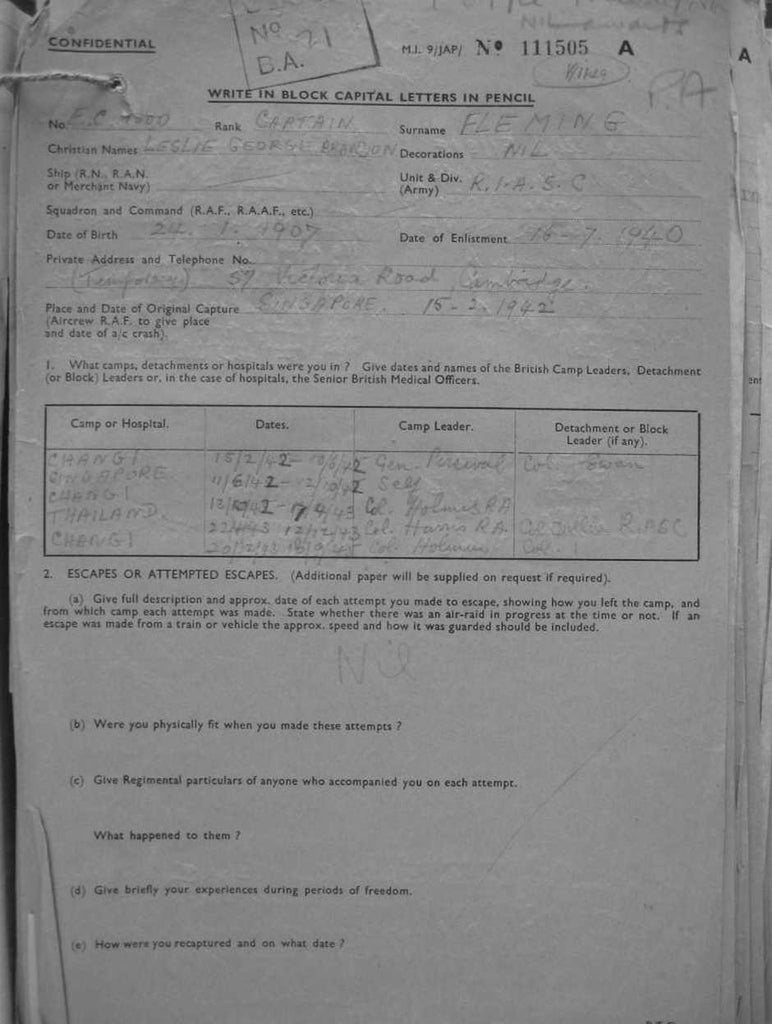 NIL awards
CONFIDENTIAL
No 71
B.A.
M.I. 9/JAP/ No 111505 A
A
WRITE IN BLOCK CAPITAL LETTERS IN PENCIL
No. E.C. Rank CAPTAIN Surname FLEMING
Christian Names LESLIE GEORGE Decorations NIL
Ship (R.N., R.A.N. or Merchant Navy)
Unit & Div. (Army) R.I.A.S.C
Squadron and Command (R.A.F., R.A.A.F., etc.)
Date of Birth 24. 1. 1907 Date of Enlistment 16-7. 1940
Private Address and Telephone No.
(Temporary) 57 Victoria Road, Cambridge.
Place and Date of Original Capture SINGAPORE. 15-2. 1942
(Aircrew R.A.F. to give place
and date of a/c crash).
1. What camps, detachments or hospitals were you in ? Give dates and names of the British Camp Leaders, Detachment
(or Block) Leaders or, in the case of hospitals, the Senior British Medical Officers.
Camp or Hospital. Dates. Camp Leader. Detachment or Block Leader (if any).
CHANGI 15/2/42 - Gen. Percival Col.
SINGAPORE 11/6/42 - 12/10/42 Self
CHANGI 12/10/42 - Col. Holmes RA
THAILAND. 22/4/43 12/12/43 Col. Harris R.A. Col R.A.S.C
CHANGI 20/12/43 Col. Holmes Col.
2. ESCAPES OR ATTEMPTED ESCAPES. (Additional paper will be supplied on request if required).
(a) Give full description and approx. date of each attempt you made to escape, showing how you left the camp, and
from which camp each attempt was made. State whether there was an air-raid in progress at the time or not. If an
escape was made from a train or vehicle the approx. speed and how it was guarded should be included.
Nil
(b) Were you physically fit when you made these attempts ?
(c) Give Regimental particulars of anyone who accompanied you on each attempt.
What happened to them ?
(d) Give briefly your experiences during periods of freedom.
(e) How were you recaptured and on what date ?